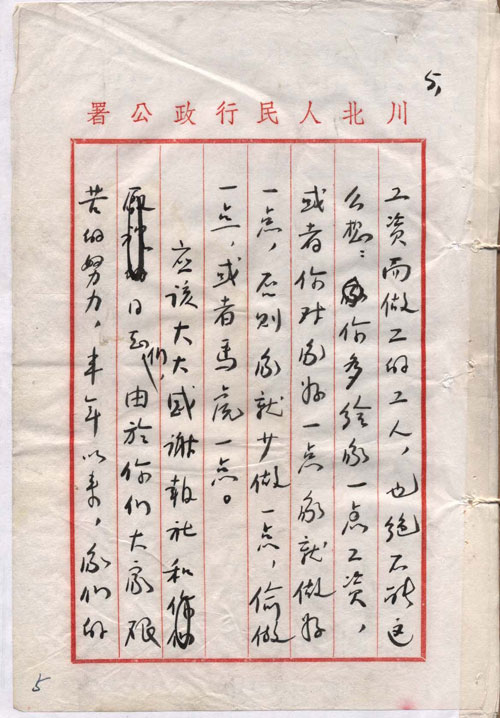 5,
川北人民行政公署
工资而做工的工人，也绝不能这
么想：你多给我一点工资，
或者你对我好一点我就做好
一点，否则我就少做一点，偷做
一点，或者马虎一点。
应该大大感谢报社和
同志们，由於你们大家艰
苦的努力，半年以来，我们的
5